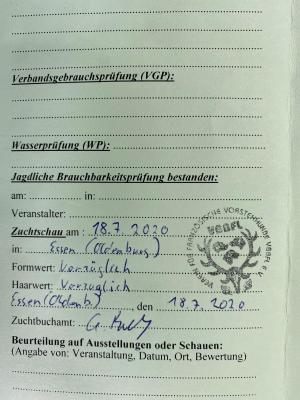 Verbandsgebrauchsprüfung (VGP):
Wasserprüfung (WP):
Jagdliche Brauchbarkeitsprüfung bestanden:
am: in:
Veranstalter:
Zuchtschau am: 18.7.2020
in: Essen (Oldenburg)
Formwert: Vorzüglich
Haarwert: Vorzüglich
Essen (Oldenb.), den 18.7.2020
Zuchtbuchamt:
Beurteilung auf Ausstellungen oder Schauen:
(Angabe von: Veranstaltung, Datum, Ort, Bewertung)
VEREIN FÜR FRANZÖSISCHE VORSTEHHUNDE